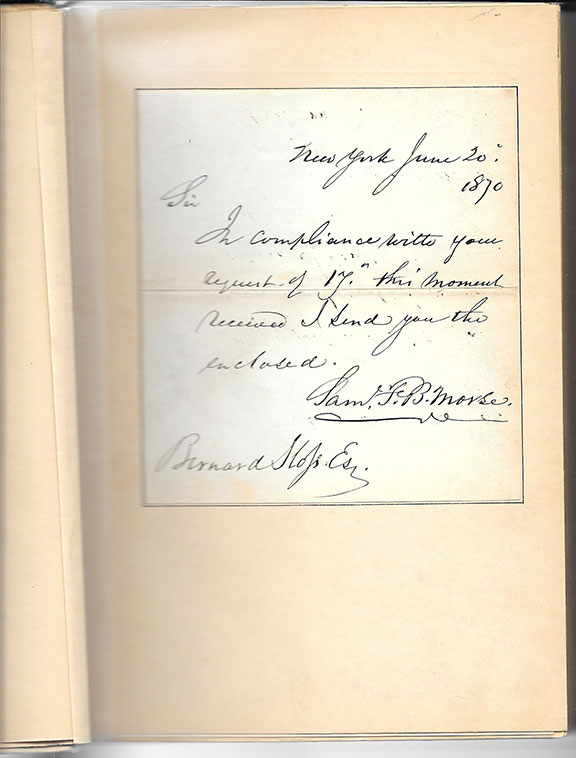 New York June 20.
1870
Sir
In compliance with your
request of 17." this moment
received I send you the
enclosed.
Saml. F. B. Morse.
Bernard Esq.